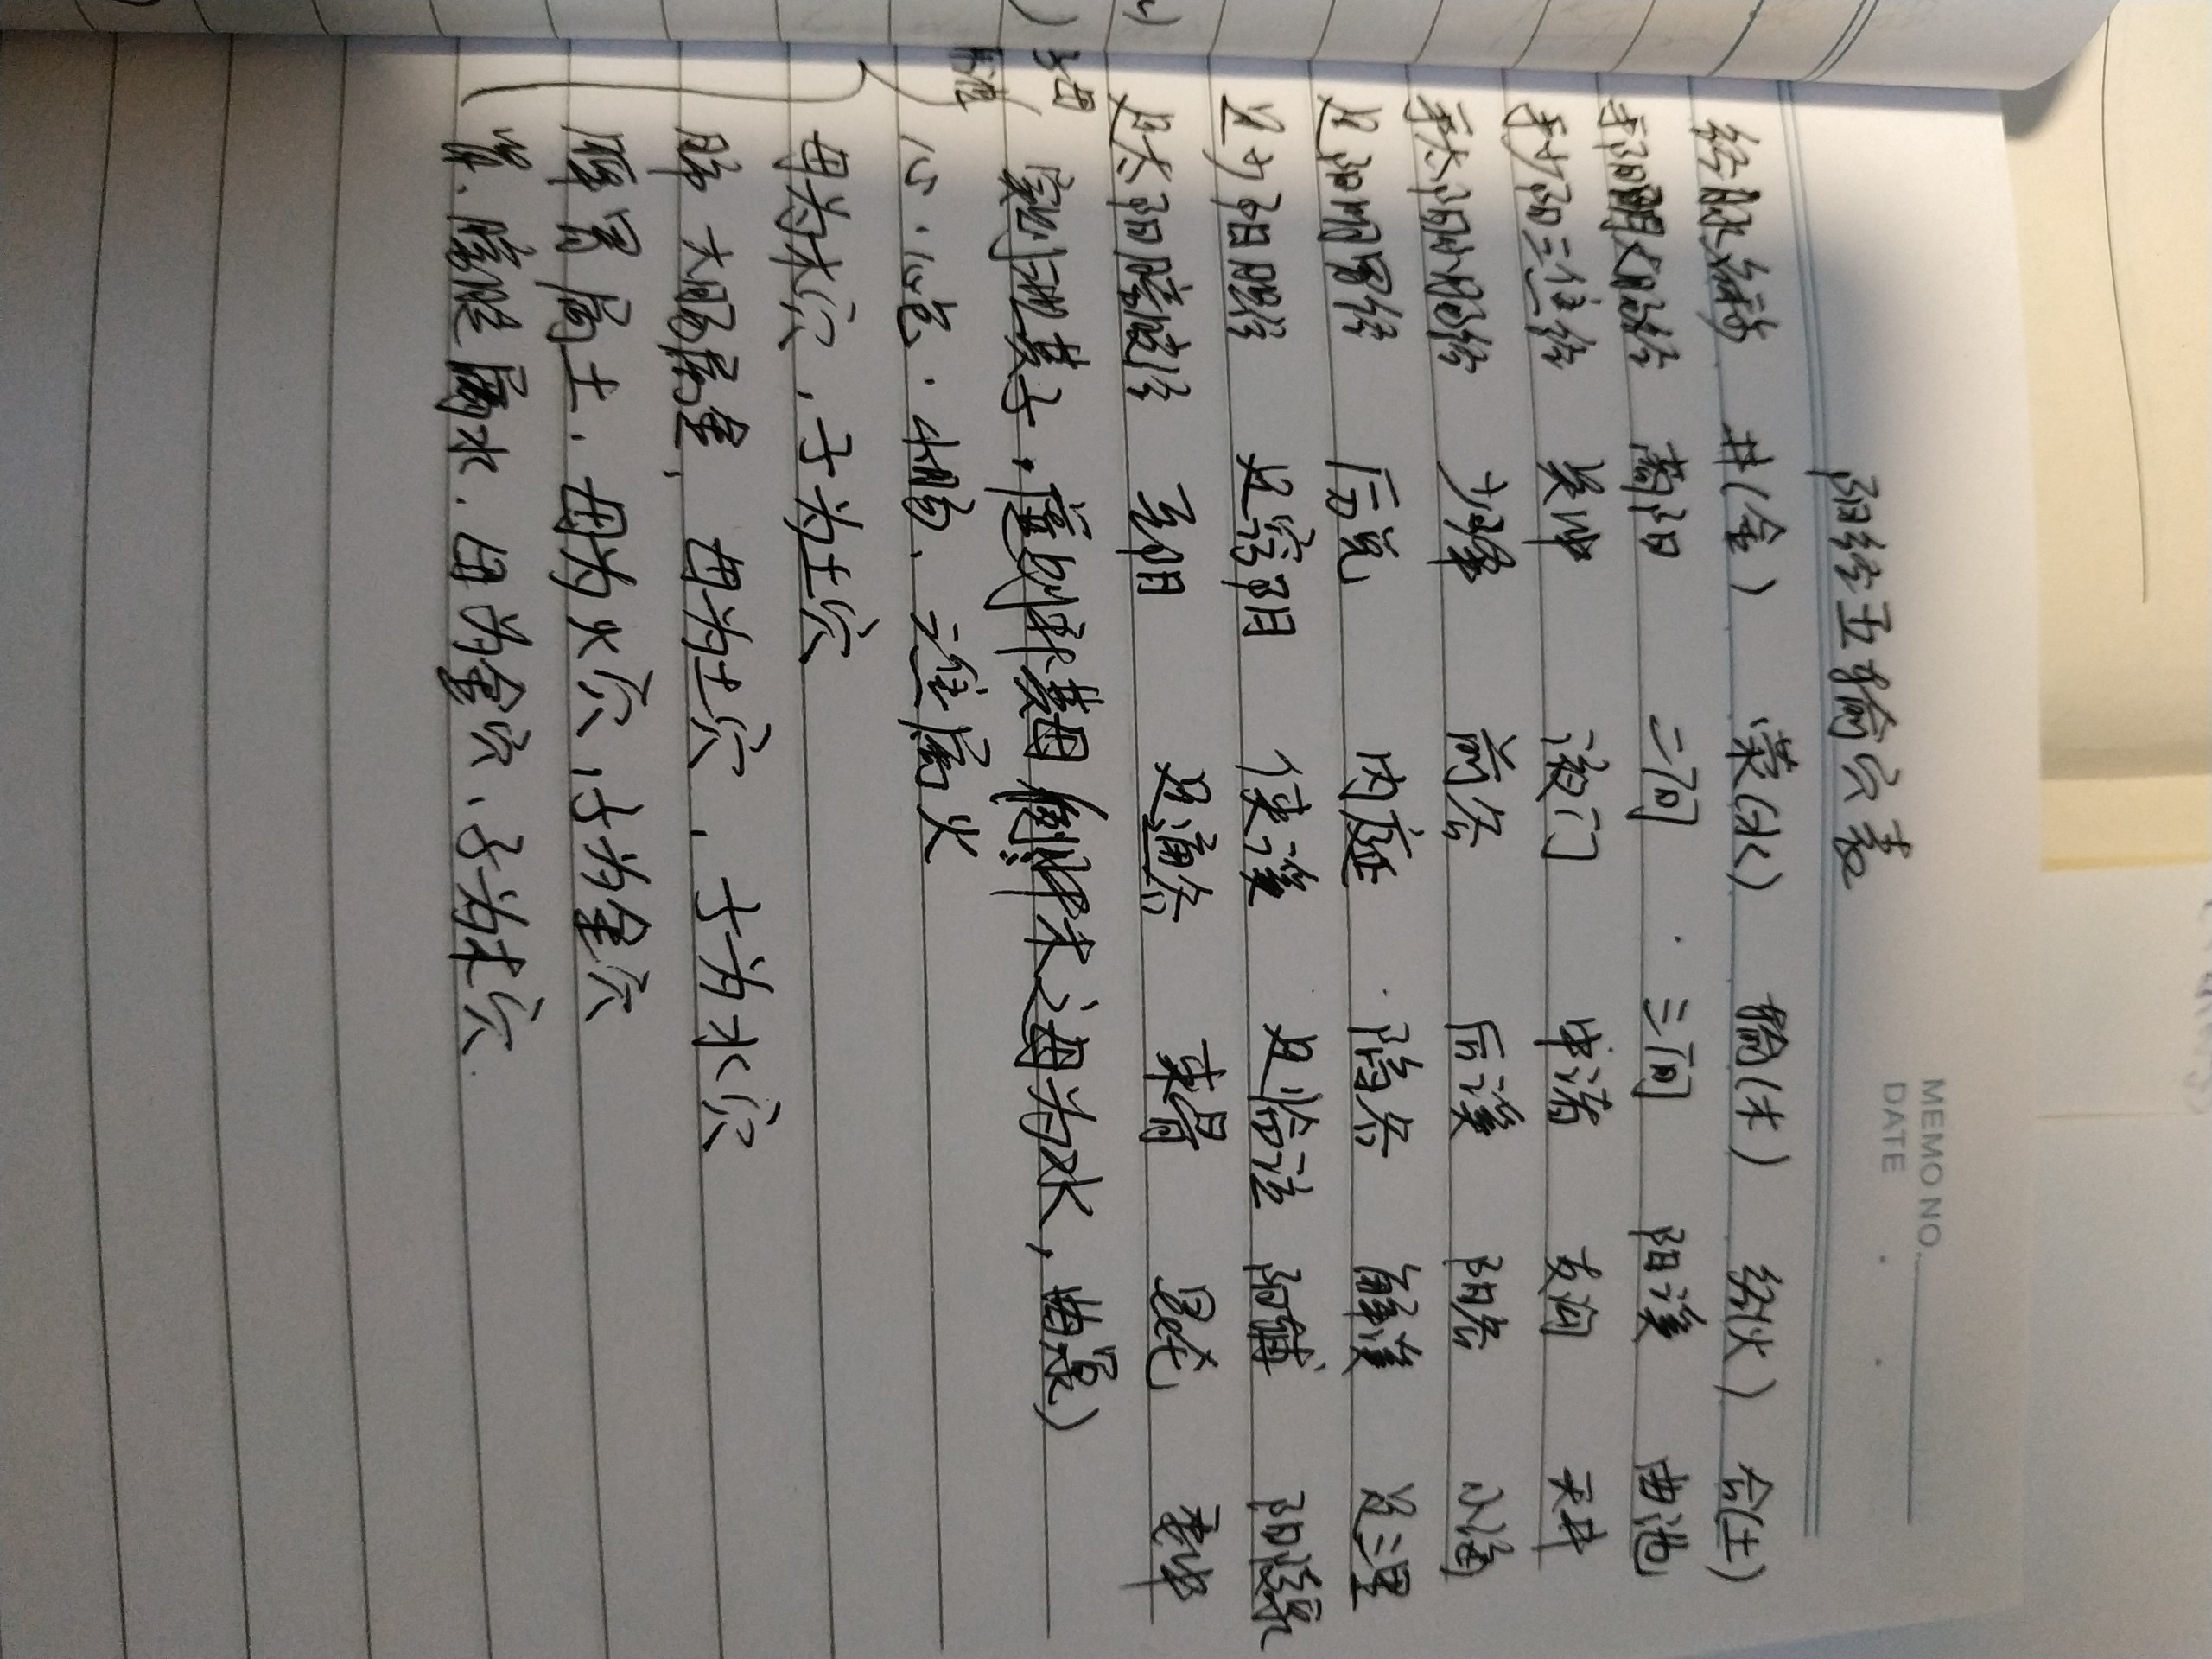 MEMO NO.
DATE
阳经五输穴表
经脉名称 井(金) 荥(水) 输(木) 经(火) 合(土)
手阳明大肠经 商阳 二间 三间 阳溪 曲池
手少阳三焦经 关冲 液门 中渚 支沟 天井
手太阳小肠经 少泽 前谷 后溪 阳谷 小海
足阳明胃经 厉兑 内庭 陷谷 解溪 足三里
足少阳胆经 足窍阴 侠溪 足临泣 阳辅 阳陵泉
足太阳膀胱经 至阴 足通谷 束骨 昆仑 委中
实则泻其子,虚则补其母 例 肝木 母为水,
心.心包.小肠、三焦属火
母为木穴,子为土穴
肺 大肠属金,母为土穴,子为水穴
脾胃属土.母为火穴,子为金穴
肾、膀胱属水.母为金穴、子为木穴.